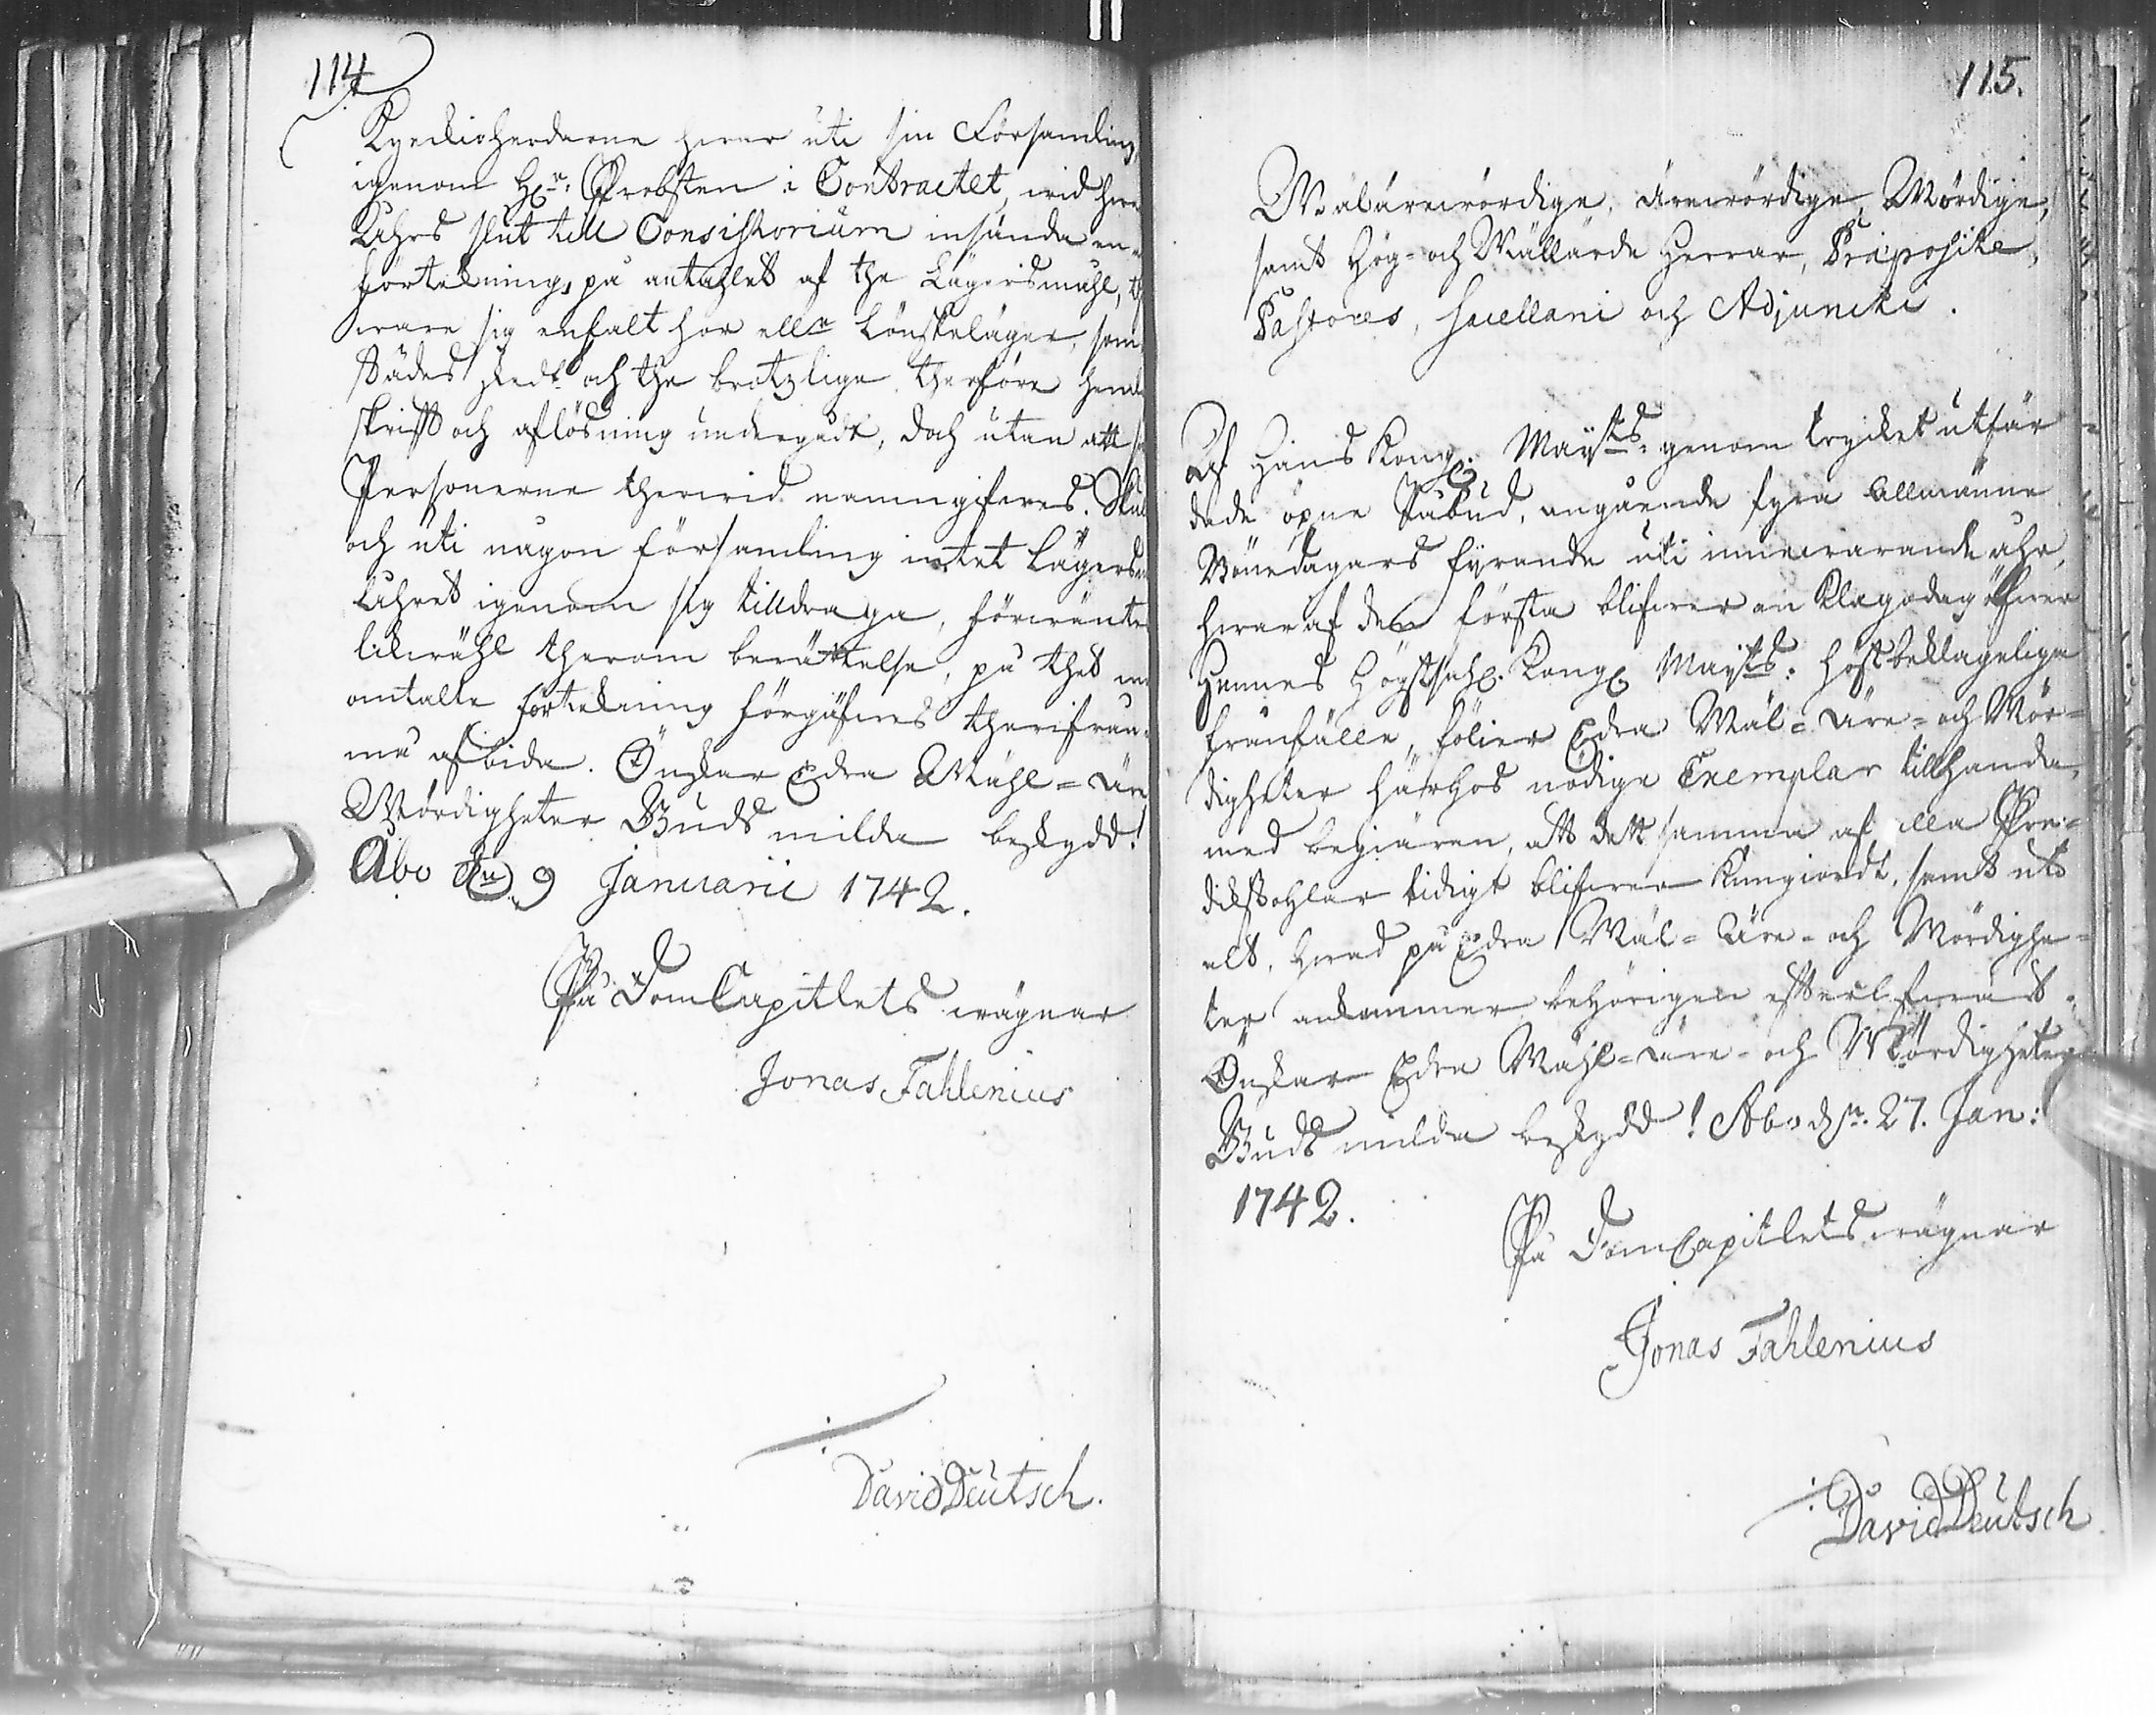 114
Kyrckioherdarne hwar uti sin Församling,
igenom H:r Probsten i Contractet, wid hwar
Åhrs slut till Consistorium insända en
förtekning på antahlet af the Lägersmåhl,
ware sig enfalt hor eller Lönskeläger, som
städes skedt och the brotzlige therföre
skrifft och aflösning undergådt, doch utan att
Personerne therwid namngifwes. Skulle
och uti någon församling intet Lägersmåhl
Åhret igenom sig tilldraga, förwäntes
likwähl therom berättelse, på thet
omtalte förtekning förgäfwes therifrån
må afbida. Önskar Edra Wähl- Äre
Wördigheter Guds milda beskydd!
Åbo d: 9 Januarii 1742.
På DomCapitlets wägnar
Jonas Fahlenius
David Deutsch.
115.
Wälärewördige, Ärewördige, Wördige,
samt Hög- och Wällärde Herrar, Præposite,
Pastores, Sacellani och Adjuncti.
Af Hans Kongl. Maÿts. genom trycket utfär-
dade öpne Påbud, angående fyra Allmänne
Bönedagars fyrande uti innewarande åhr,
hwaraf den första blifwer en Klagodag öfwer
Hennes Högstsahl. Kongl. Maÿts. höstbeklagelige
frånfälle, följer Edra Wäl- Äre- och Wör-
digheter härhos nödige Exemplar tillhanda,
med begiäran, att dett samma af alla Pre-
dikstohlar tidigt blifwer kungiordt, samt uti
alt, hwad på Edra Wäl- Äre- och Wördighe-
ter ankommer behörigen efterlefwas.
Önskar Edra Wähl- Äre- och Wördigheter
Guds milda beskydd! Åbo d: 27. Jan:
1742.
På DomCapitlets wägnar
Jonas Fahlenius
David Deutsch